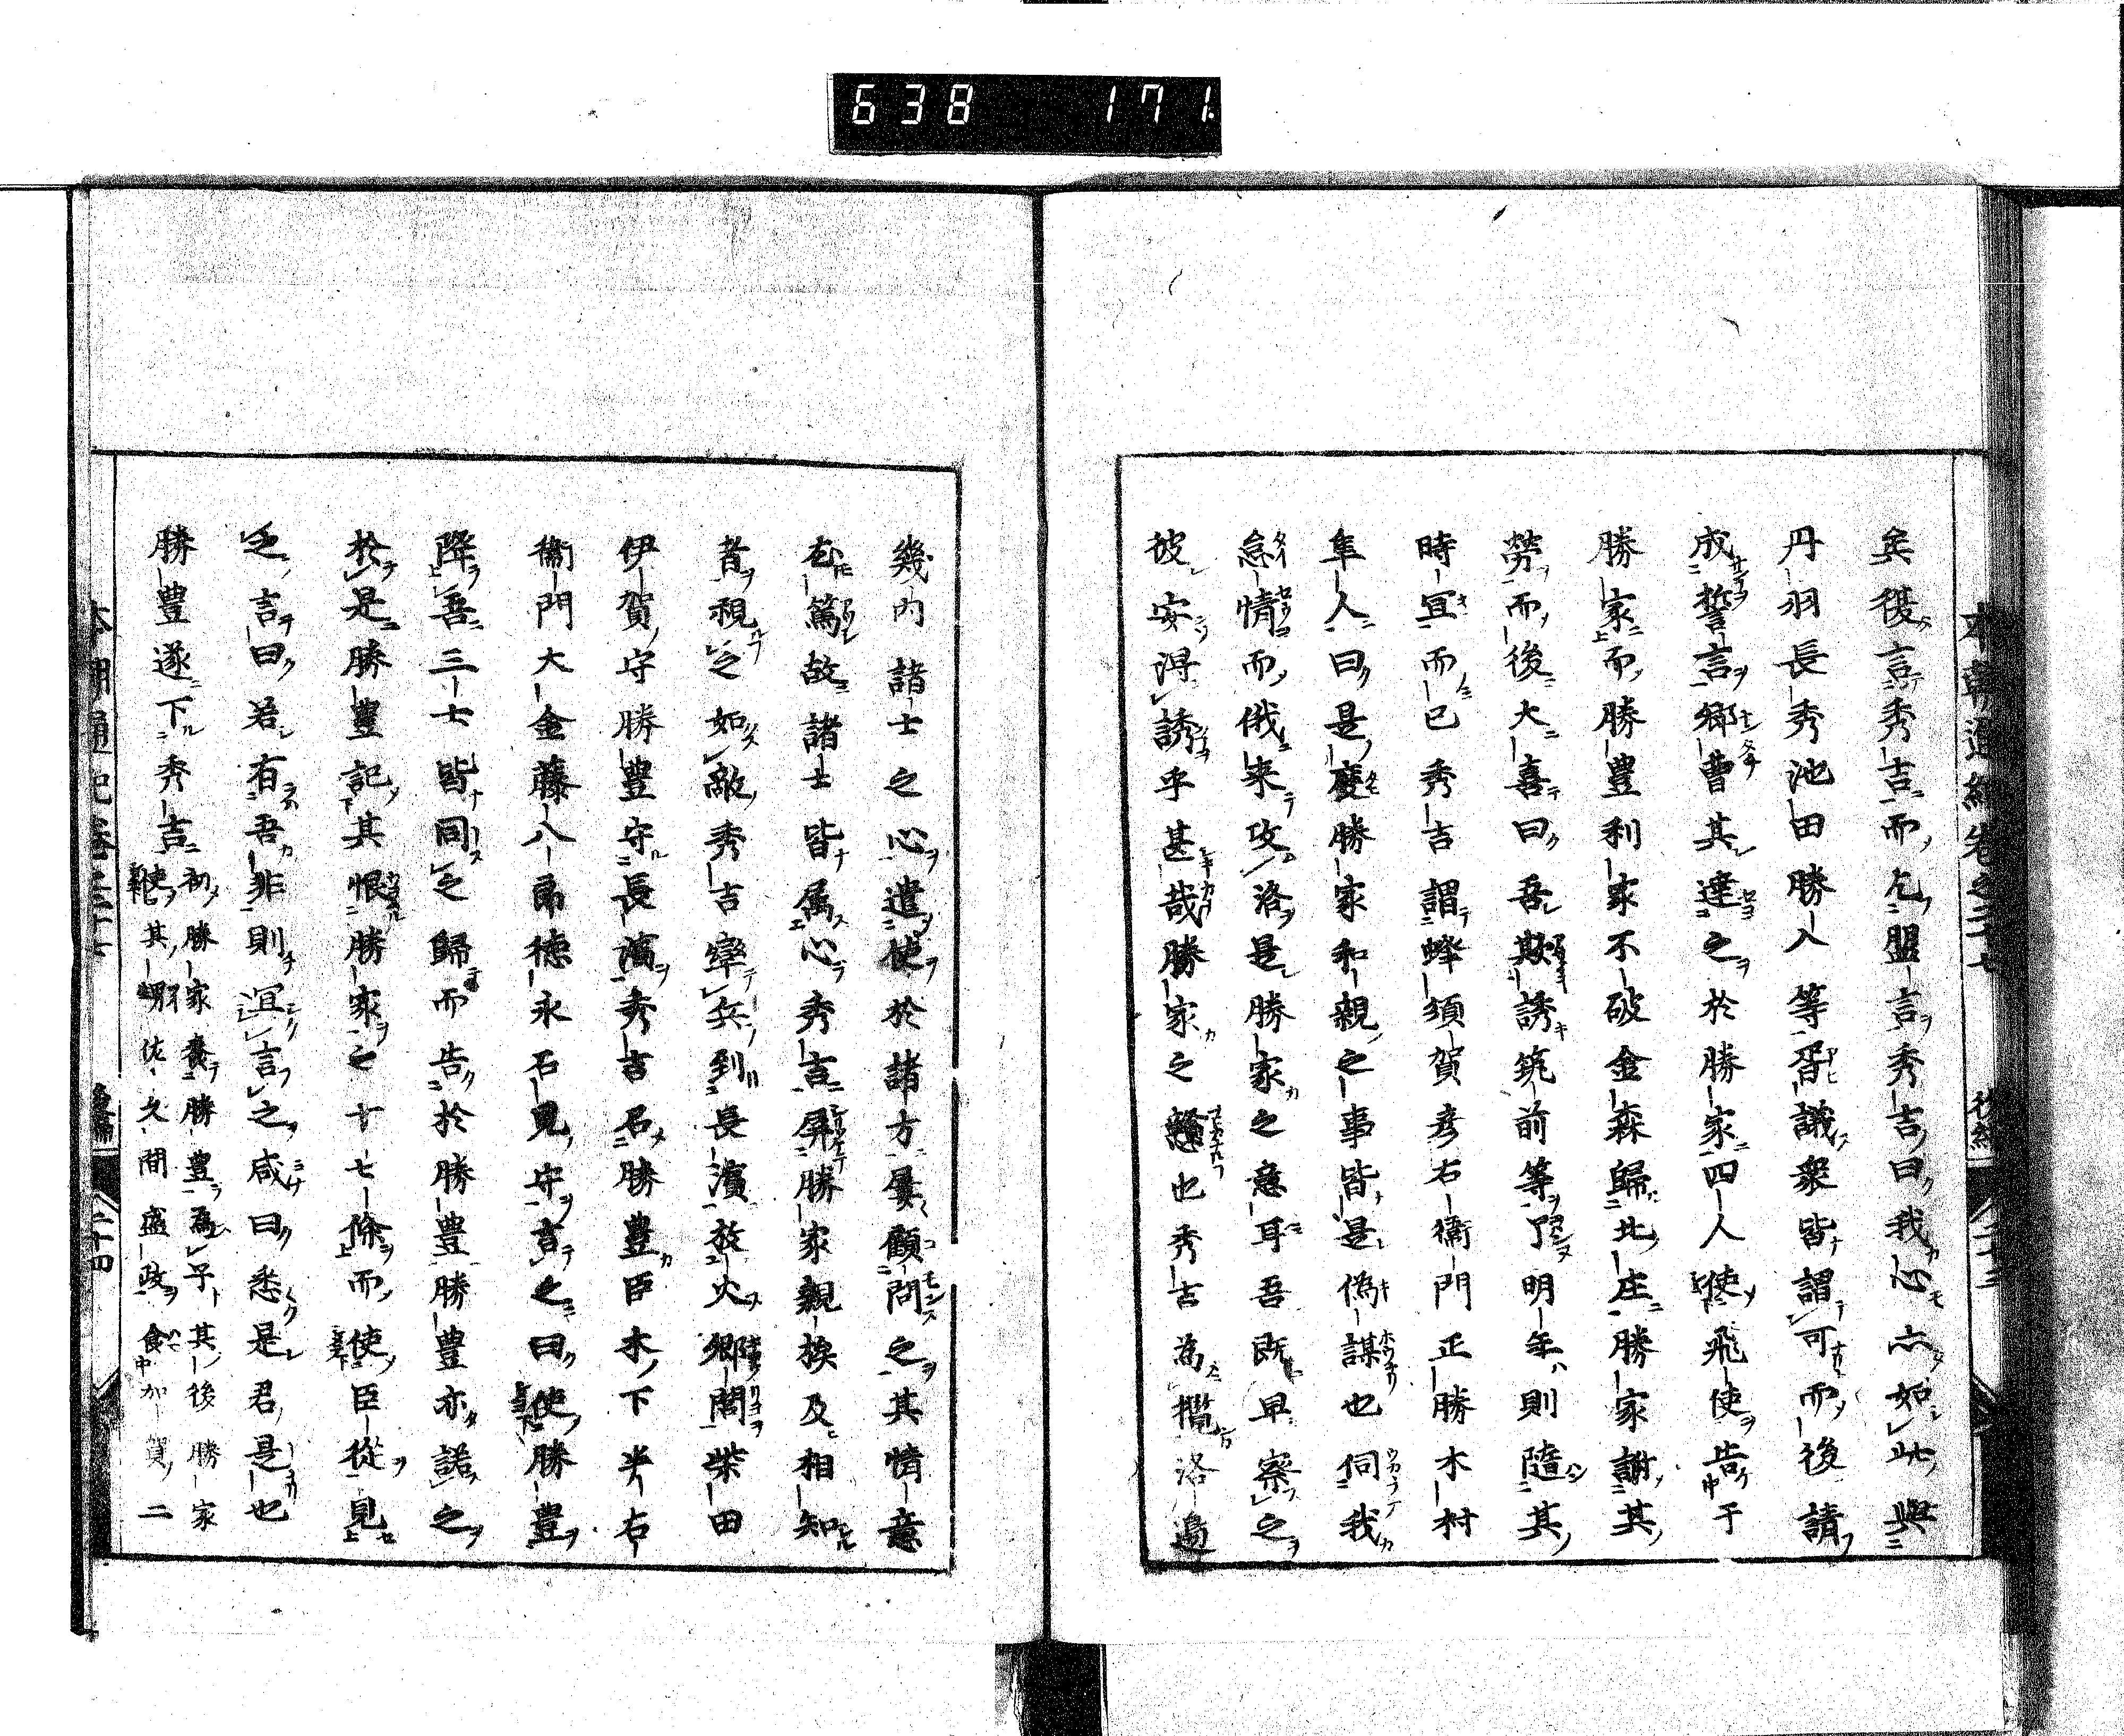 638 171
矣後喜秀吉而乞盟言秀吉曰我心亦如此與
丹羽長秀池田勝入等胥議衆皆謂可而後請
成誓言郷曹其達之於勝家四人使飛使告于
勝家而勝豊利家不破金森歸北庄勝家謝其
勞而後大喜曰吾欺誘筑前等了明年則隨其
時宜而已秀吉謂蜂須賀彦右衞門正勝木村
隼人曰是度勝家和親之事皆是偽謀也伺我
怠情而俄来攻洛是勝家之意耳吾既早察之
彼安得誘乎甚哉勝家之戇也秀吉為攬洛邉
幾内諸士之心遣使於諸方屢顧問之其情意
尤篤故諸士皆属心秀吉屏勝家親族及相知
者視之如敵秀吉率兵到長濱放火郷閭柴田
伊賀守勝豊守長濱秀吉召勝豊臣木下半右
衞門大金藤八郎徳永石見守言之曰使勝豊
降吾三士皆同之歸而告於勝豊勝豊亦諾之
於是勝豊記其恨勝家之十七條而使臣從見
之言曰若有吾非則冝言之咸曰悉是君是也
勝豊遂下秀吉初勝家養勝豊為子其後勝家
使其甥佐久間盛政食加賀二
本朝通紀巻之二十七 後編 二十四